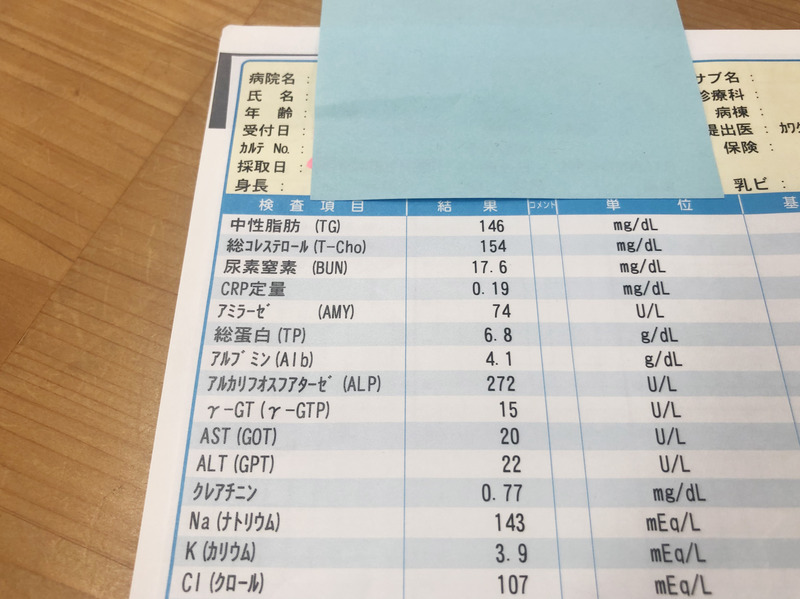 病院名：
氏　名：
年　齢：
受付日：
カルテ No.：
採取日：
身長：
サブ名：
診療科：
病棟：
提出医：
保険：
乳ビ：
検査項目 結果 コメント 単位 基
中性脂肪 (TG) 146 mg/dL
総コレステロール(T-Cho) 154 mg/dL
尿素窒素 (BUN) 17.6 mg/dL
CRP定量 0.19 mg/dL
アミラーゼ (AMY) 74 U/L
総蛋白(TP) 6.8 g/dL
アルブミン(Alb) 4.1 g/dL
アルカリフオスフアターゼ(ALP) 272 U/L
γ-GT(γ-GTP) 15 U/L
AST(GOT) 20 U/L
ALT(GPT) 22 U/L
クレアチニン 0.77 mg/dL
Na(ナトリウム) 143 mEq/L
K(カリウム) 3.9 mEq/L
Cl(クロール) 107 mEq/L